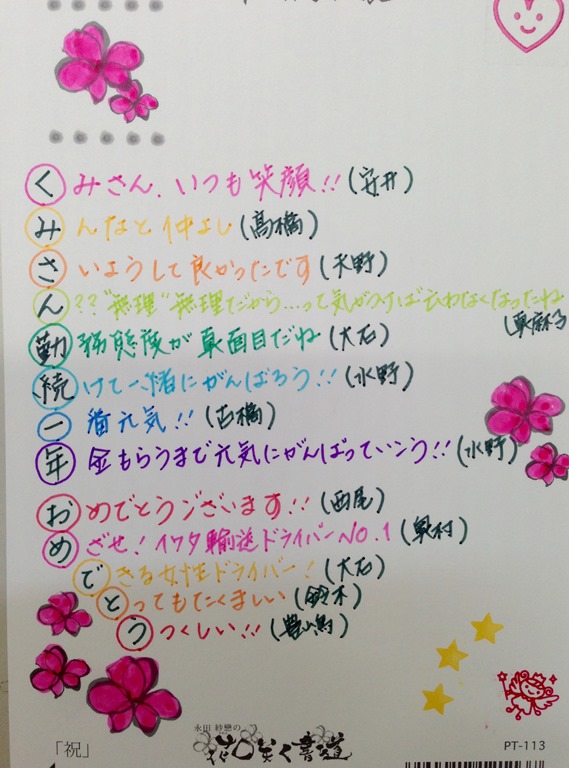 くみさん、いつも笑顔!!(安井)
みんなと仲よし(高橋)
さいようして良かったです(天野)
ん??"無理"無理だから...って気がつけば言わなくなったね
勤務態度が真面目だね(大石)
続けて一緒にがんばろう!!(水野)
一番元気!!(古橋)
年金もらうまで元気にがんばっていこう!!(水野)
おめでとうございます!!(西尾)
めざせ!イワタ輸送ドライバーNO.1(奥村)
できる女性ドライバー!(大石)
とってもたくましい(鈴木)
うつくしい!!(豊嶋)
永田紗戀の
花咲く書道
「祝」
PT-113